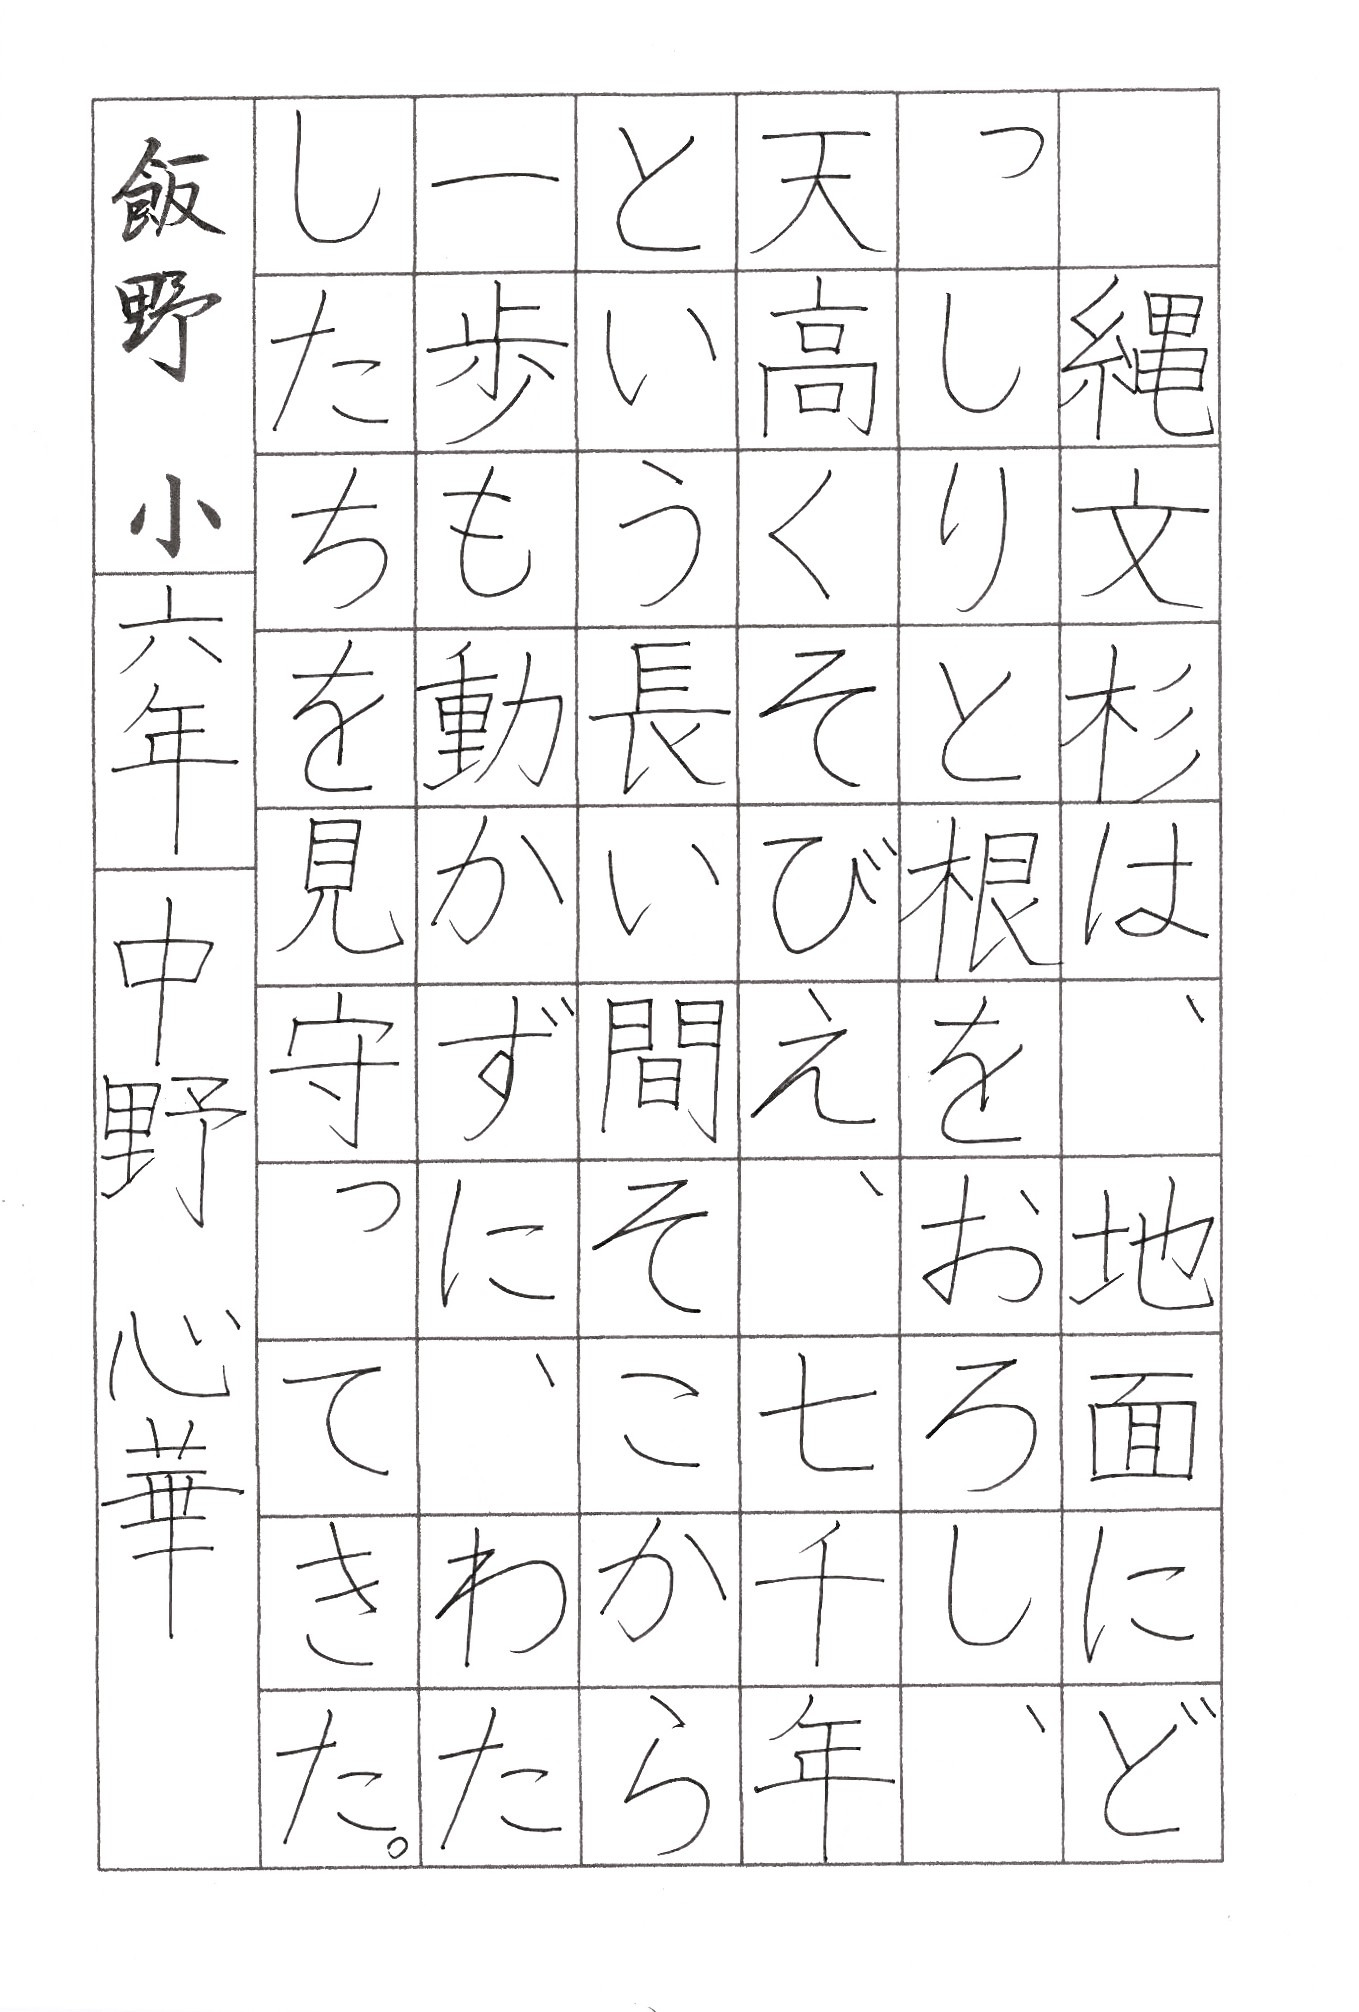 縄文杉は、地面にど
っしりと根をおろし、
天高くそびえ、七千年
という長い間そこから
一歩も動かずに、わた
したちを見守ってきた。
飯野小六年中野心華